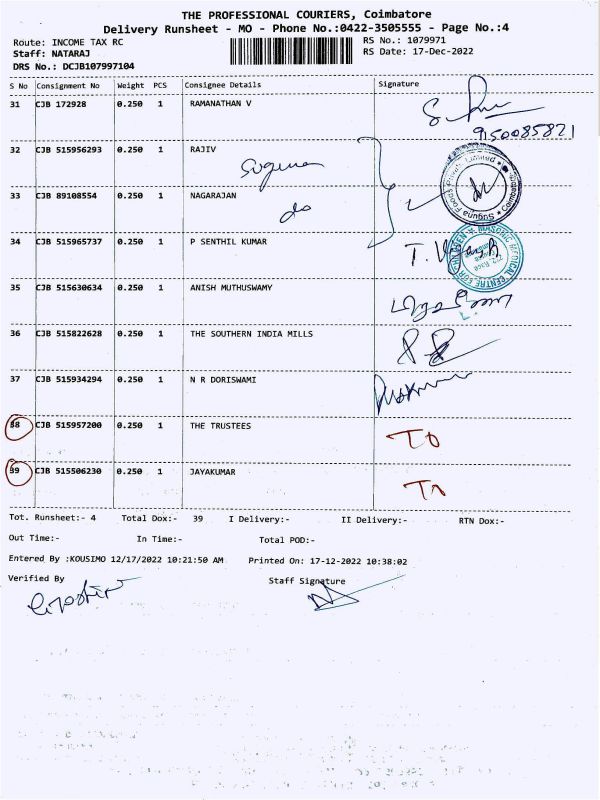 THE PROFESSIONAL COURIERS, Coimbatore
Delivery Runsheet - MO - Phone No.:0422-3505555 - Page No.:4
Route: INCOME TAX RC
RS No.: 1079971
Staff: NATARAJ
RS Date: 17-Dec-2022
DRS No.: DCJB107997104
S No Consignment No Weight PCS Consignee Details Signature
31 CJB 172928 0.250 1 RAMANATHAN V
9150085821
32 CJB 515956293 0.250 1 RAJIV
Suguna
33 CJB 89108554 0.250 1 NAGARAJAN
do
Suguna Foods Private Limited * Coimbatore *
34 CJB 515965737 0.250 1 P SENTHIL KUMAR
MASONIC MEDICAL CENTRE FOR CHILDREN
35 CJB 515630634 0.250 1 ANISH MUTHUSWAMY
36 CJB 515822628 0.250 1 THE SOUTHERN INDIA MILLS
37 CJB 515934294 0.250 1 N R DORISWAMI
38 CJB 515957200 0.250 1 THE TRUSTEES
39 CJB 515506230 0.250 1 JAYAKUMAR
Tot. Runsheet:- 4 Total Dox:- 39 I Delivery:- II Delivery:- RTN Dox:-
Out Time:- In Time:- Total POD:-
Entered By :KOUSIMO 12/17/2022 10:21:50 AM Printed On: 17-12-2022 10:38:02
Verified By Staff Signature